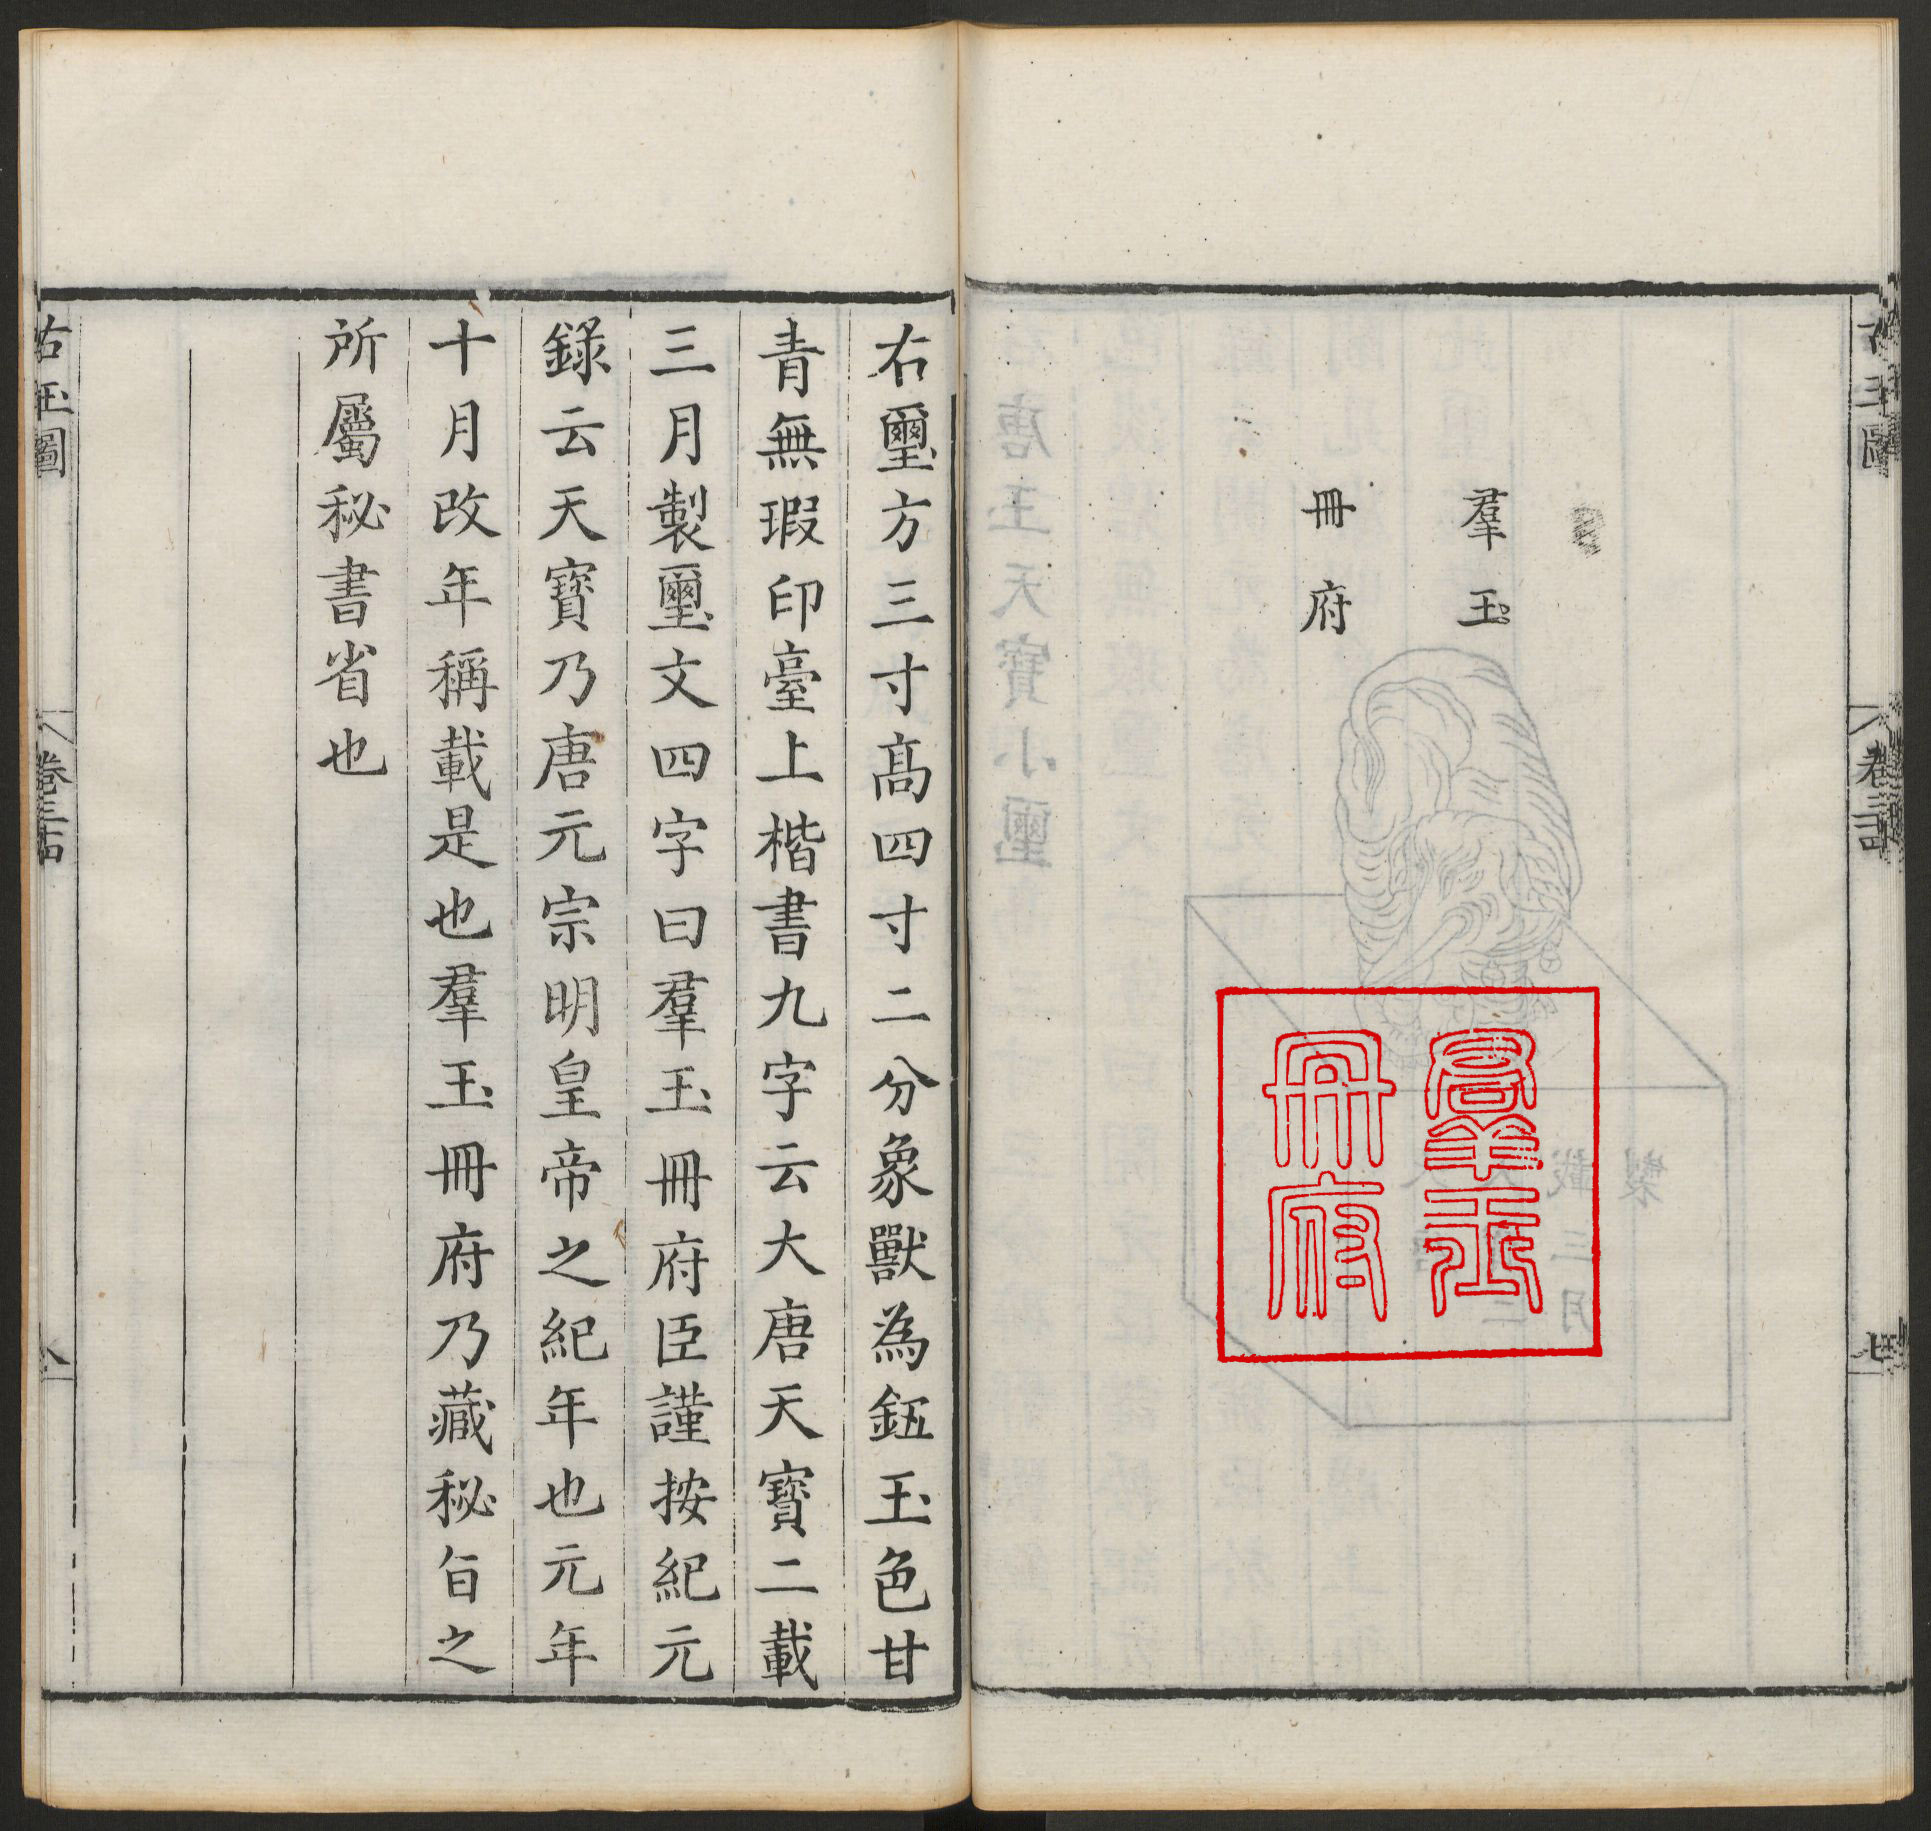 古玉圖
卷三
七
羣玉
冊府
羣玉
冊府
右璽方三寸高四寸二分象獸為鈕玉色甘
青無瑕印臺上楷書九字云大唐天寶二載
三月製璽文四字曰羣玉冊府臣謹按紀元
錄云天寶乃唐元宗明皇帝之紀年也元年
十月改年稱載是也羣玉冊府乃藏秘旨之
所屬秘書省也
古玉圖
八